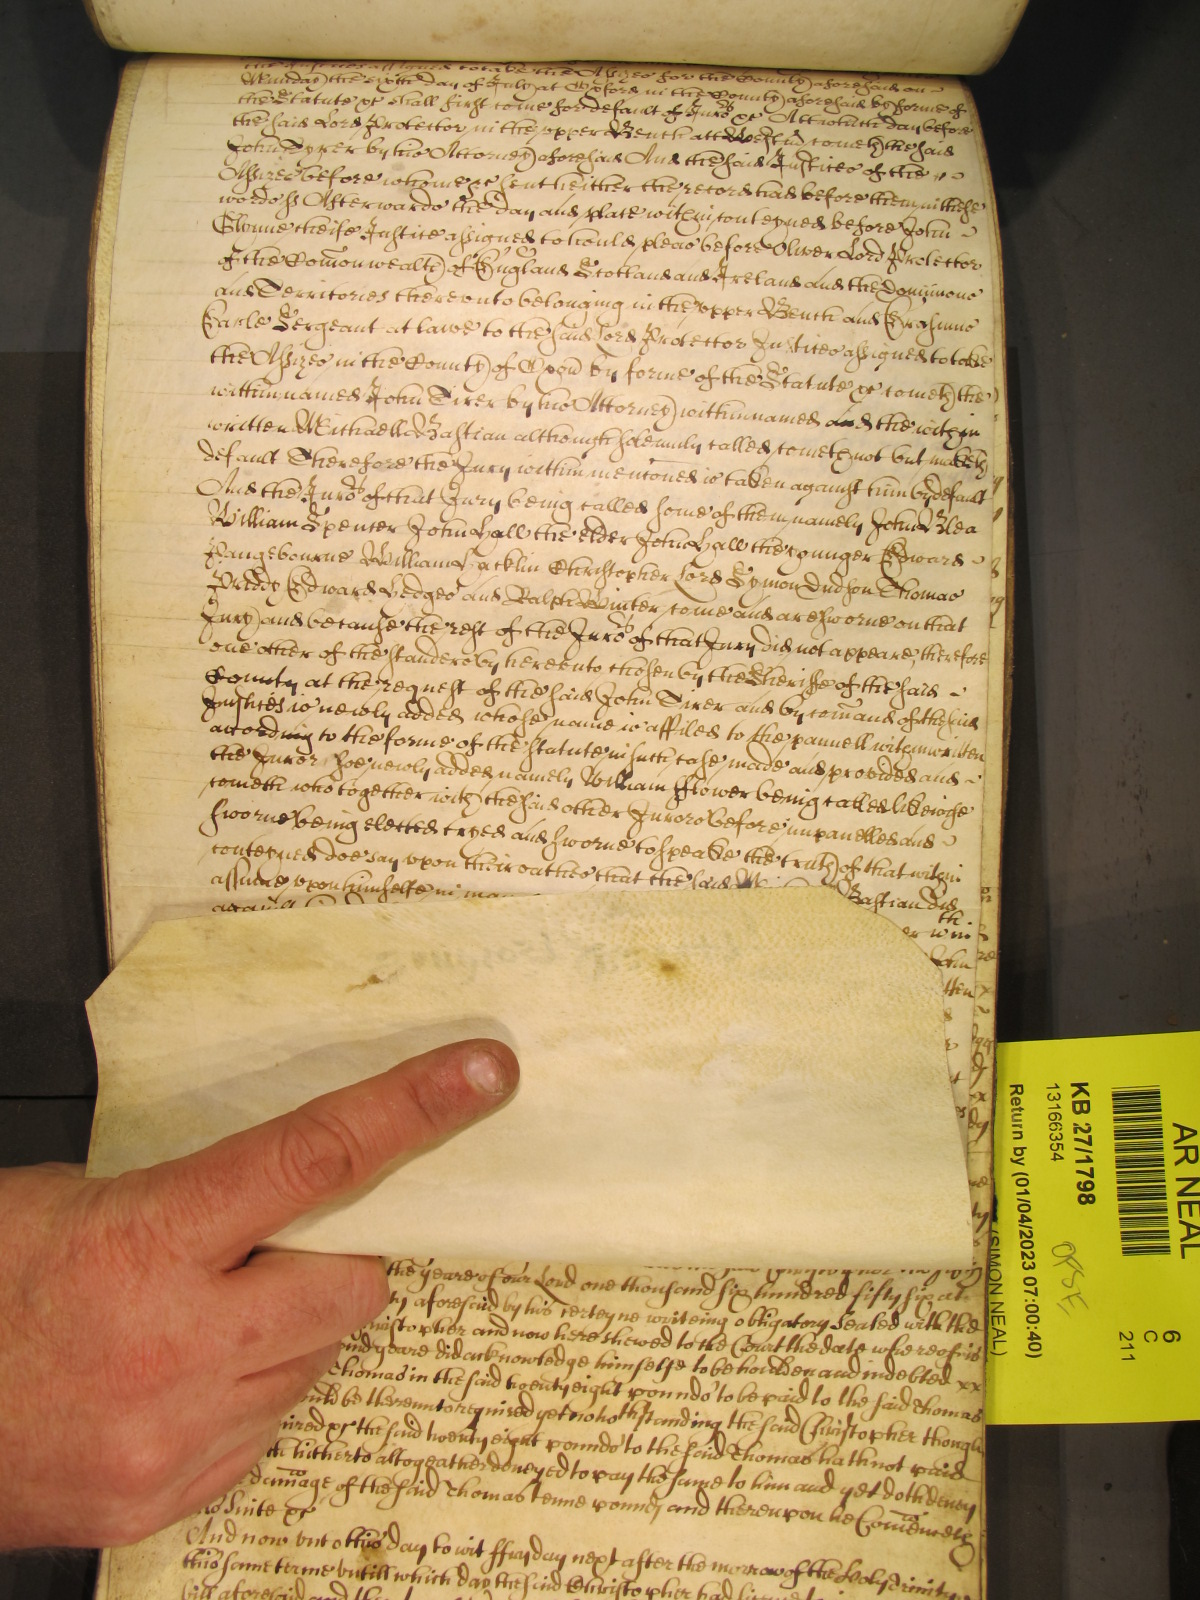 the Justices assigned to take the Assizes for the County aforesaid on
Munday the sixth day of July at Oxford in the County aforesaid by forme of
the Statute &c shall first come for default of Juro's &c Att which day before
the said Lord Protector in the upper Bench att Westm cometh the said
John Tyrer by his Attorney aforesaid And the said Justices of the
Assizes before whome &c sent hither the record had before them in these
words ss Afterwards the day and place within conteyned before John
Glynne cheife Justice assigned to hould pleas before Oliver Lord Protector
of the Comon wealth of England Scotland and Ireland and the Dominions
and Territories thereunto belonging in the upper Bench and Erasmus
Earle Sergeant at lawe to the said Lord Protector Justices assigned to take
the Assizes in the County of Oxon by forme of the Statute &c cometh the
within named John Tirer by his Attorney within named and the within
written Michaell Bastian although solemnly called cometh not but maketh
default Therefore the Jury within mentioned is taken against him by default
And the Juro's of that Jury being called some of them namely John Blea
William Spencer John Hall the elder John Hall the younger Edward
Pangebourne William Jacklin Christopher Lord Symon Judson Thomas
Priddy Edward Hedges and Ralph Winter come and are sworne on that
Jury and because the rest of the Juro's of that Jury did not appeare, therefore
one other of the standers by hereunto chosen by the Sheriffe of the said
County at the request of the said John Tirer and by comand of the said
Justices is newly added whose name is affiled to the pannell within written
according to the forme of the statute in such case made and provided and
the Juror soe newly added namely William Flower being called likewise
cometh who together with the said other Jurors before impanelled and
sworne being elected tryed and sworne to speake the truth of that within
conteyned doe say upon their oathes that the said Mi Bastian did
assume upon himselfe in man
against
the yeare of our Lord one thousand six hundred fifty six att
ty aforesaid by his certeyne writeing obligatory Sealed with the
ristopher and now here shewed to the Court the date whereof is
and yeare did acknowledge himselfe to be houlden and indebted xx
Thomas in the said twenty eight pounds to be paid to the said Thomas
ould be thereunto required yet notwithstanding the said Christopher though
uired &c the said twenty eight pounds to the said Thomas hath not paid
hitherto altogeather denyed to pay the same to him and yet doth deny
damage of the said Thomas tenne pounds and thereupon he
his Suite &c
And now att this day to wit ffryday next after the morrow of the Holy Trinity
this same terme untill which day the said Christopher had
bill aforesaid and
AR NEAL
KB 27/1798
13166354
Return by (01/04/2023 07:00:40)
(SIMON NEAL)
6
C
211